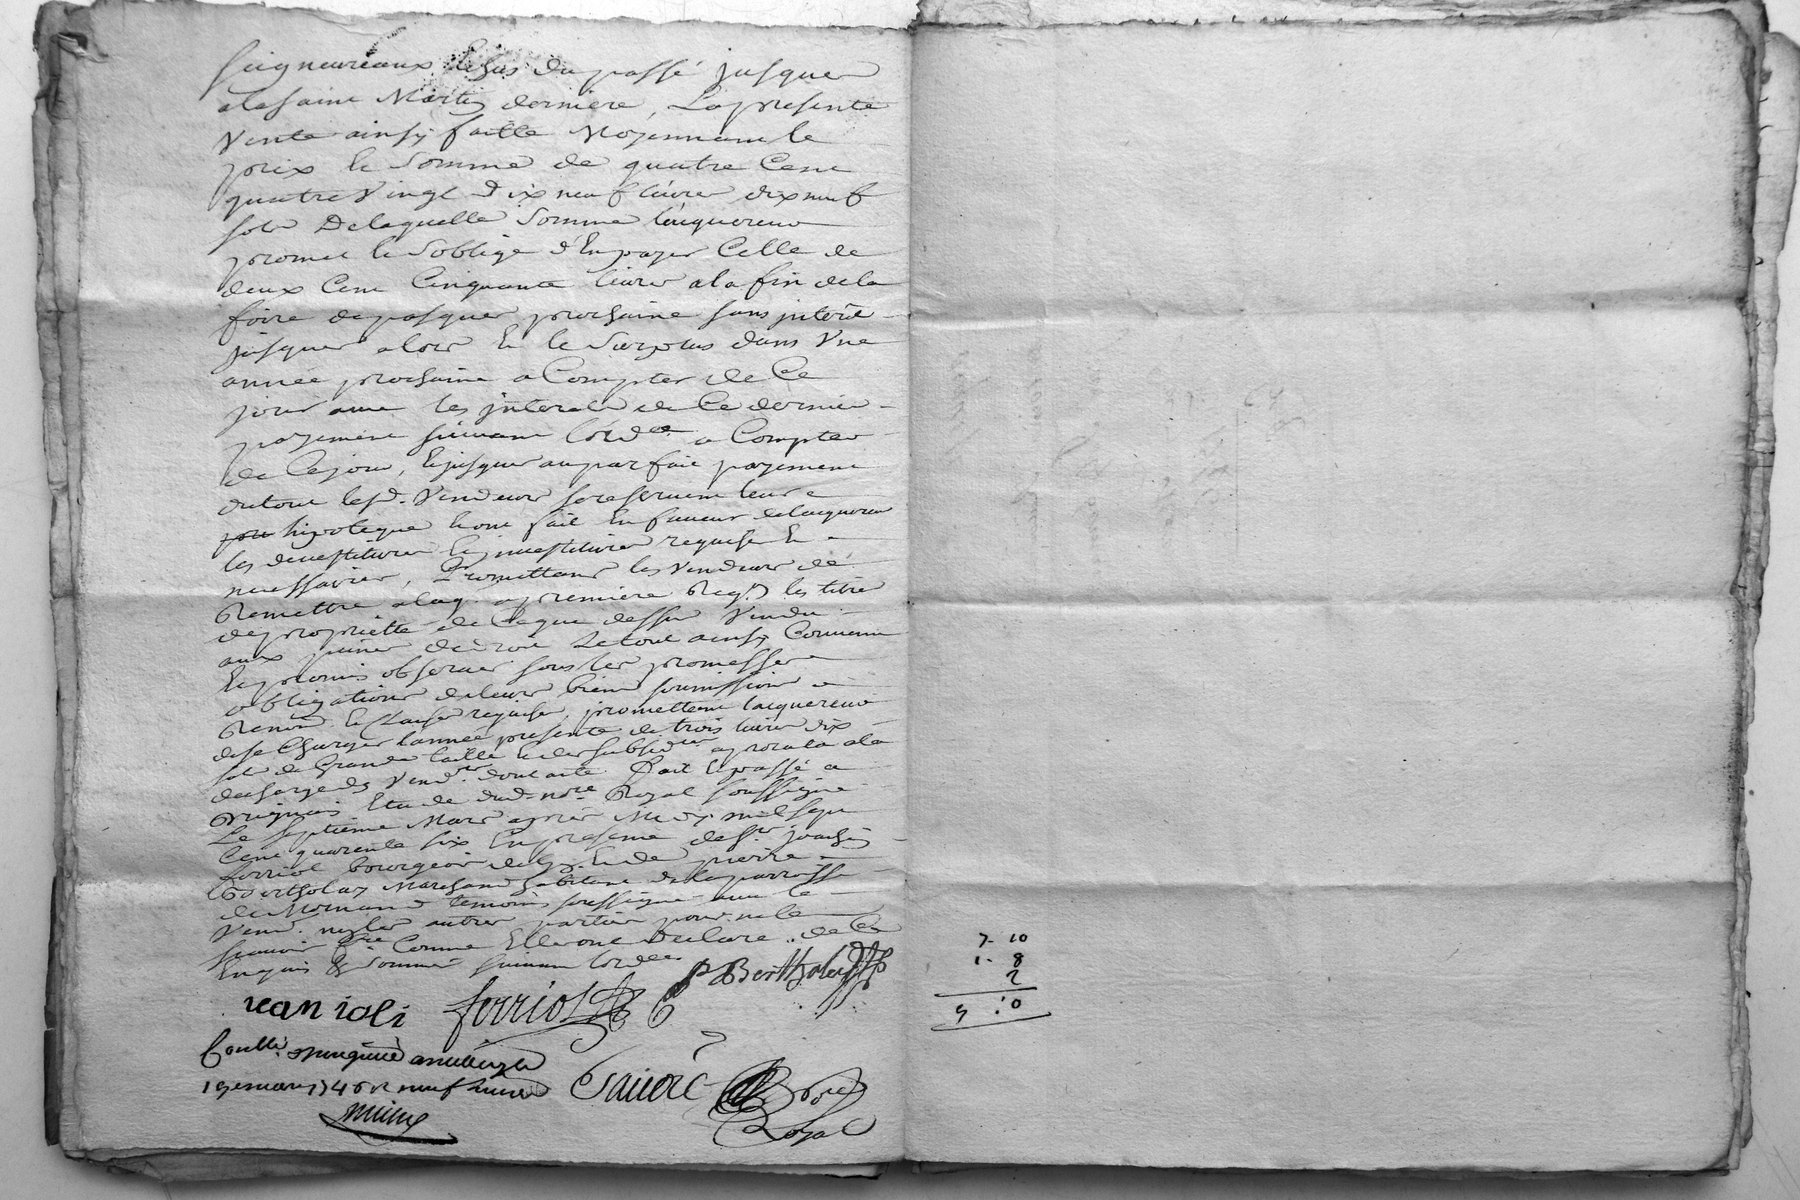 seigneureaux du passé jusquer
alasaint Martin derniere, La presente
Vente ainsy faitte Moyennant le
prix la Somme de quatre Cent
quatre Vingt Dix neuf livres dix neuf
sols De laquelle Somme lacquereur
promet s'oblige d'En payer Celle de
deux Cent Cinquante livres a la fin de la
foire de pasques prochaine sans interêt
jusques alors Et le Surplus dans Une
année prochaine a Compter de Ce
jour avec les jnterets de Ce dernier
payement suivant lord.ce a Compter
de Ce jour, Et jusques au parfait payement
du tout lesd. Vendeurs se reservent leur
hipoteque Et ont fait En faveur de lacquereur
les devestitures Et jnvestitures requises Et
necessaires, Promettant les Vendeurs de
Remettre alacq. a premiere Req.on les titres
de propriette de Ce que dessus Vendu
aux peines de droit Le tout ainsy Convenu
Et promis observer sous les promesses
obligations de leurs biens soumissions
Renon. Et Clauses requises, promettant lacquereur
de se Charger lannée presente de trois livres dix
sols de Grande taille et des subsides a prorata a la
decharge des Vend.rs dont acte Fait Et passé a
Etude dud. not.re Royal soussigné
Le Septieme Mars apres Midy mil sept
Cent quarente six En presence de s.r joachin
ferriol bourgeois de Et de pierre
Bertholay Marchand habitant de la parroisse
de Mornand temoins soussignés avec le
Vend. non les autres parties pour ne le
scavoir Comme Elle ont Declaré de Ce
Enquis & Sommés suivant lord.ce
jean joli ferriol P Bertholay
Contllé a
19e mars 1746 R neuf livres
Favore Not.re
Royal
7. 10
1. 8
2
9 . 0